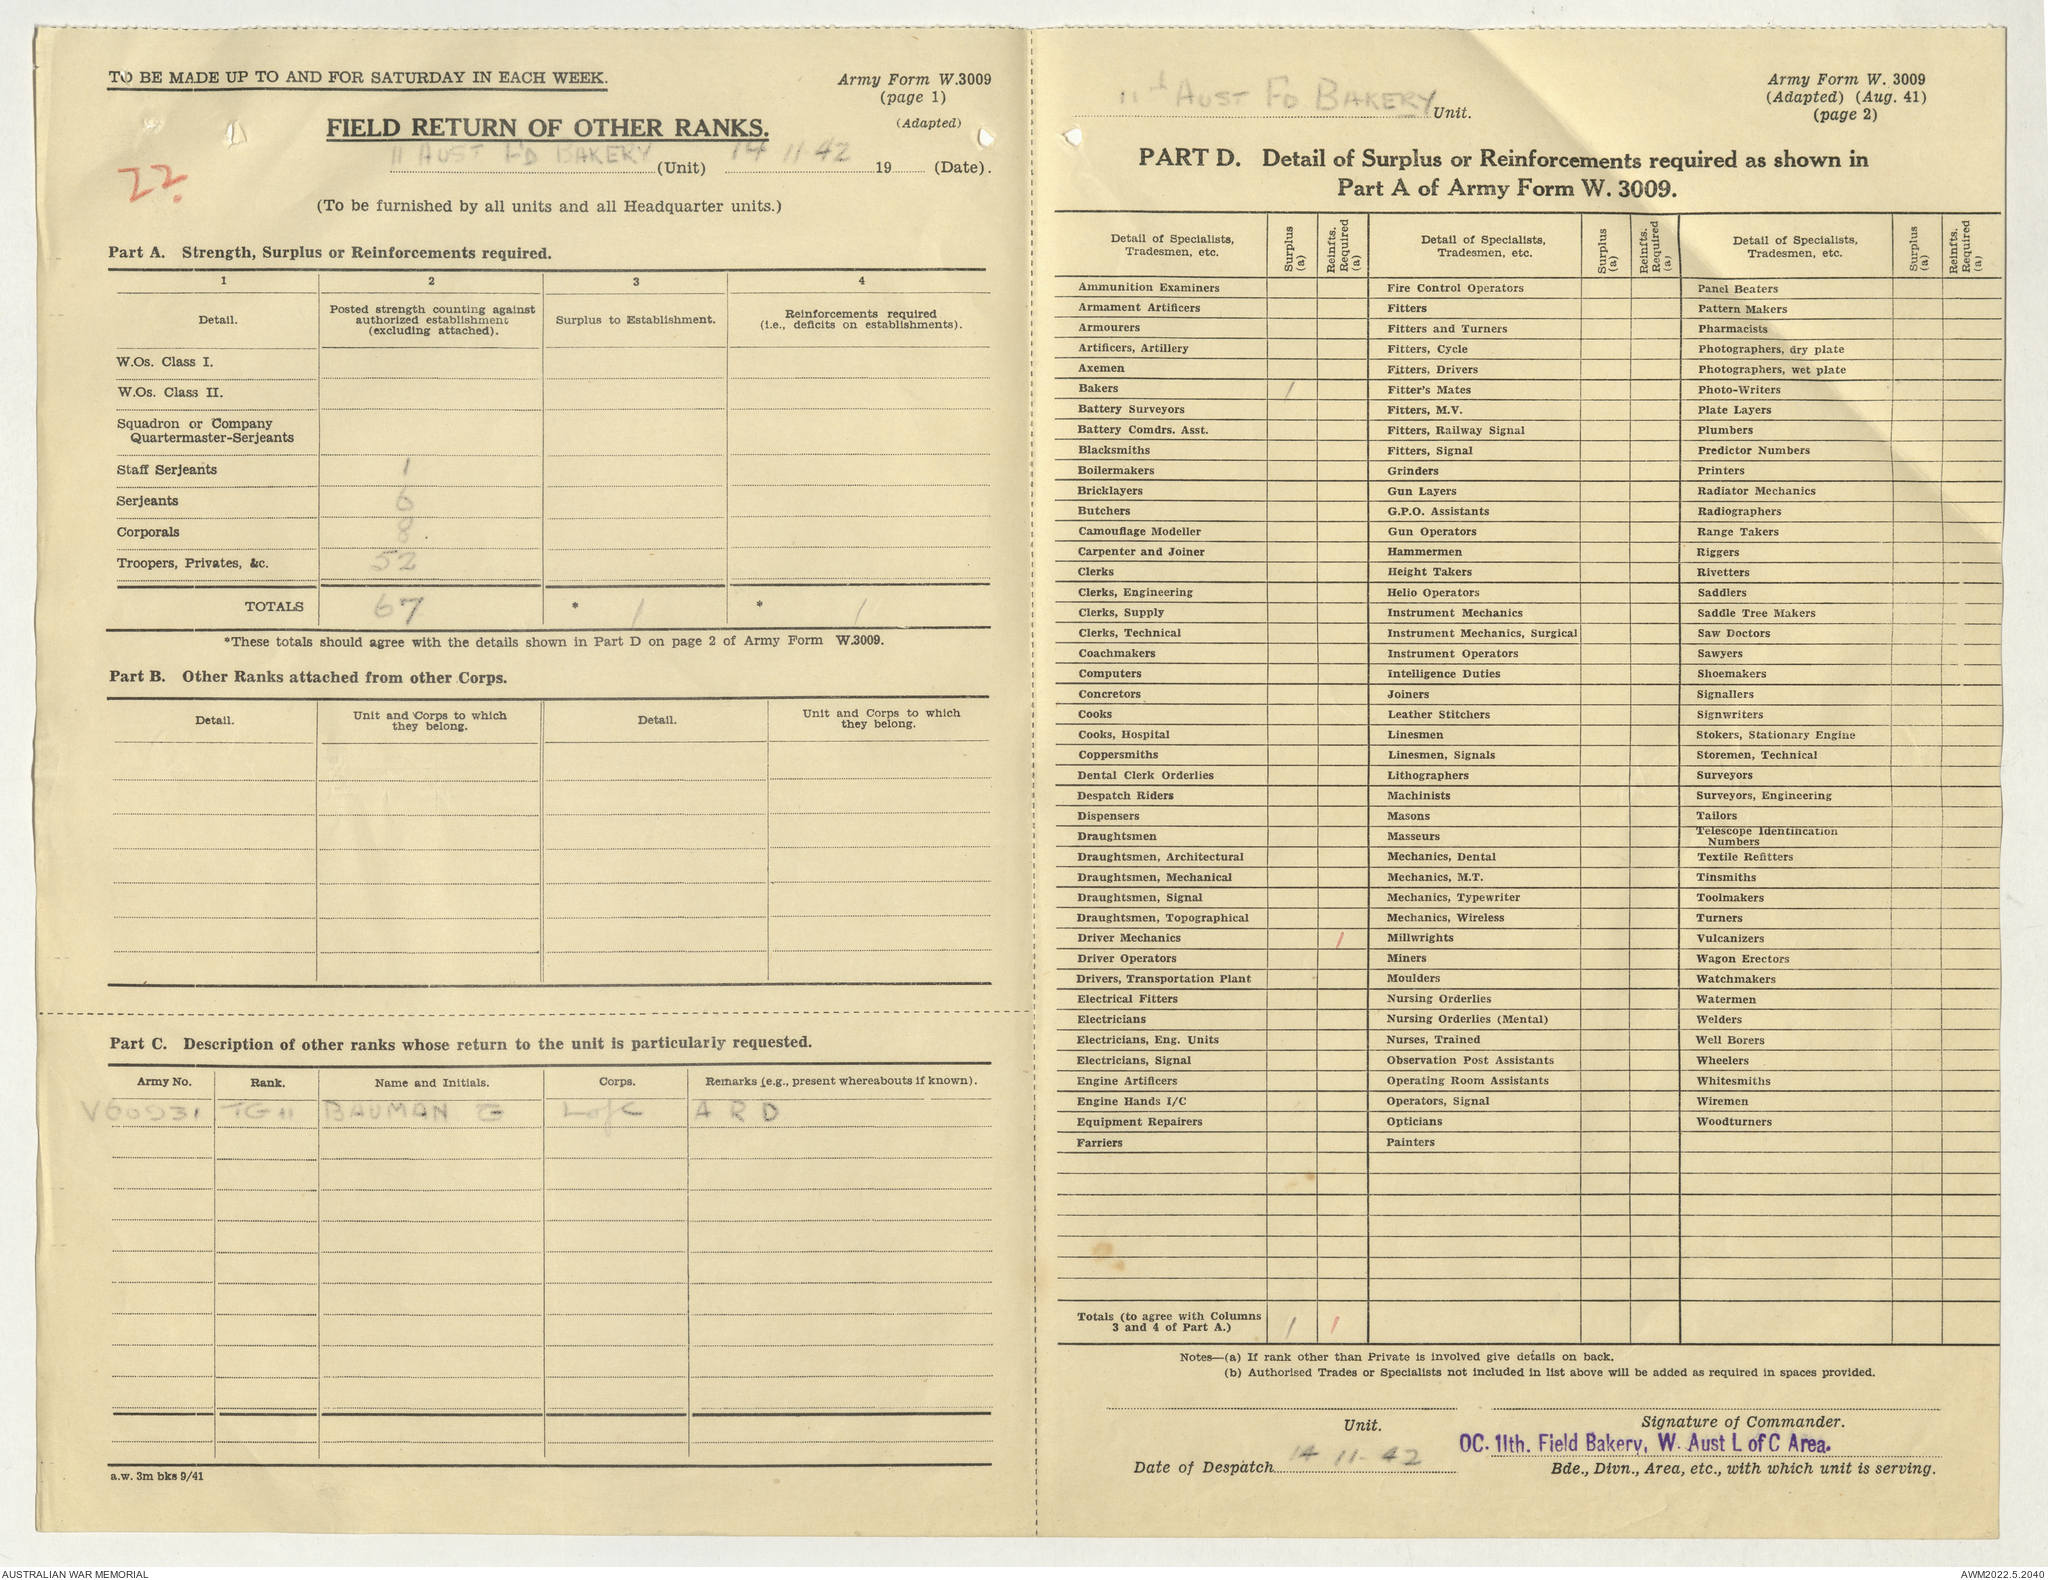 TO BE MADE UP TO AND FOR SATURDAY IN EACH WEEK.
Army Form W.3009
(page 1)
(Adapted)
FIELD RETURN OF OTHER RANKS.
22.
11 AUST FD BAKERY (Unit) 14 11-42 19 (Date).
(To be furnished by all units and all Headquarter units.)
Part A. Strength, Surplus or Reinforcements required.
1 2 3 4
Detail. Posted strength counting against authorized establishment (excluding attached). Surplus to Establishment. Reinforcements required (i.e., deficits on establishments).
W.Os. Class I.
W.Os. Class II.
Squadron or Company
Quartermaster-Serjeants
Staff Serjeants 1
Serjeants 6
Corporals 8
Troopers, Privates, &c. 52
TOTALS 67 * 1 * 1
*These totals should agree with the details shown in Part D on page 2 of Army Form W.3009.
Part B. Other Ranks attached from other Corps.
Detail. Unit and Corps to which they belong. Detail. Unit and Corps to which they belong.
Part C. Description of other ranks whose return to the unit is particularly requested.
Army No. Rank. Name and Initials. Corps. Remarks (e.g., present whereabouts if known).
BAUMAN G LofC A R D
a.w. 3m bks 9/41
11th AUST FD BAKERY Unit.
Army Form W. 3009
(Adapted) (Aug. 41)
(page 2)
PART D. Detail of Surplus or Reinforcements required as shown in
Part A of Army Form W. 3009.
Detail of Specialists, Tradesmen, etc. Surplus (a) Reinfts. Required (a) Detail of Specialists, Tradesmen, etc. Surplus (a) Reinfts. Required (a) Detail of Specialists, Tradesmen, etc. Surplus (a) Reinfts. Required (a)
Ammunition Examiners Fire Control Operators Panel Beaters
Armament Artificers Fitters Pattern Makers
Armourers Fitters and Turners Pharmacists
Artificers, Artillery Fitters, Cycle Photographers, dry plate
Axemen Fitters, Drivers Photographers, wet plate
Bakers 1 Fitter's Mates Photo-Writers
Battery Surveyors Fitters, M.V. Plate Layers
Battery Comdrs. Asst. Fitters, Railway Signal Plumbers
Blacksmiths Fitters, Signal Predictor Numbers
Boilermakers Grinders Printers
Bricklayers Gun Layers Radiator Mechanics
Butchers G.P.O. Assistants Radiographers
Camouflage Modeller Gun Operators Range Takers
Carpenter and Joiner Hammermen Riggers
Clerks Height Takers Rivetters
Clerks, Engineering Helio Operators Saddlers
Clerks, Supply Instrument Mechanics Saddle Tree Makers
Clerks, Technical Instrument Mechanics, Surgical Saw Doctors
Coachmakers Instrument Operators Sawyers
Computers Intelligence Duties Shoemakers
Concretors Joiners Signallers
Cooks Leather Stitchers Signwriters
Cooks, Hospital Linesmen Stokers, Stationary Engine
Coppersmiths Linesmen, Signals Storemen, Technical
Dental Clerk Orderlies Lithographers Surveyors
Despatch Riders Machinists Surveyors, Engineering
Dispensers Masons Tailors
Draughtsmen Masseurs Telescope Identification Numbers
Draughtsmen, Architectural Mechanics, Dental Textile Refitters
Draughtsmen, Mechanical Mechanics, M.T. Tinsmiths
Draughtsmen, Signal Mechanics, Typewriter Toolmakers
Draughtsmen, Topographical Mechanics, Wireless Turners
Driver Mechanics 1 Millwrights Vulcanizers
Driver Operators Miners Wagon Erectors
Drivers, Transportation Plant Moulders Watchmakers
Electrical Fitters Nursing Orderlies Watermen
Electricians Nursing Orderlies (Mental) Welders
Electricians, Eng. Units Nurses, Trained Well Borers
Electricians, Signal Observation Post Assistants Wheelers
Engine Artificers Operating Room Assistants Whitesmiths
Engine Hands I/C Operators, Signal Wiremen
Equipment Repairers Opticians Woodturners
Farriers Painters
Totals (to agree with Columns
3 and 4 of Part A.) 1 1
Notes—(a) If rank other than Private is involved give details on back.
(b) Authorised Trades or Specialists not included in list above will be added as required in spaces provided.
Unit. Signature of Commander.
OC. 11th. Field Bakery, W. Aust L of C Area.
Date of Despatch 14 11-42 Bde., Divn., Area, etc., with which unit is serving.
AUSTRALIAN WAR MEMORIAL
AWM2022.5.2040